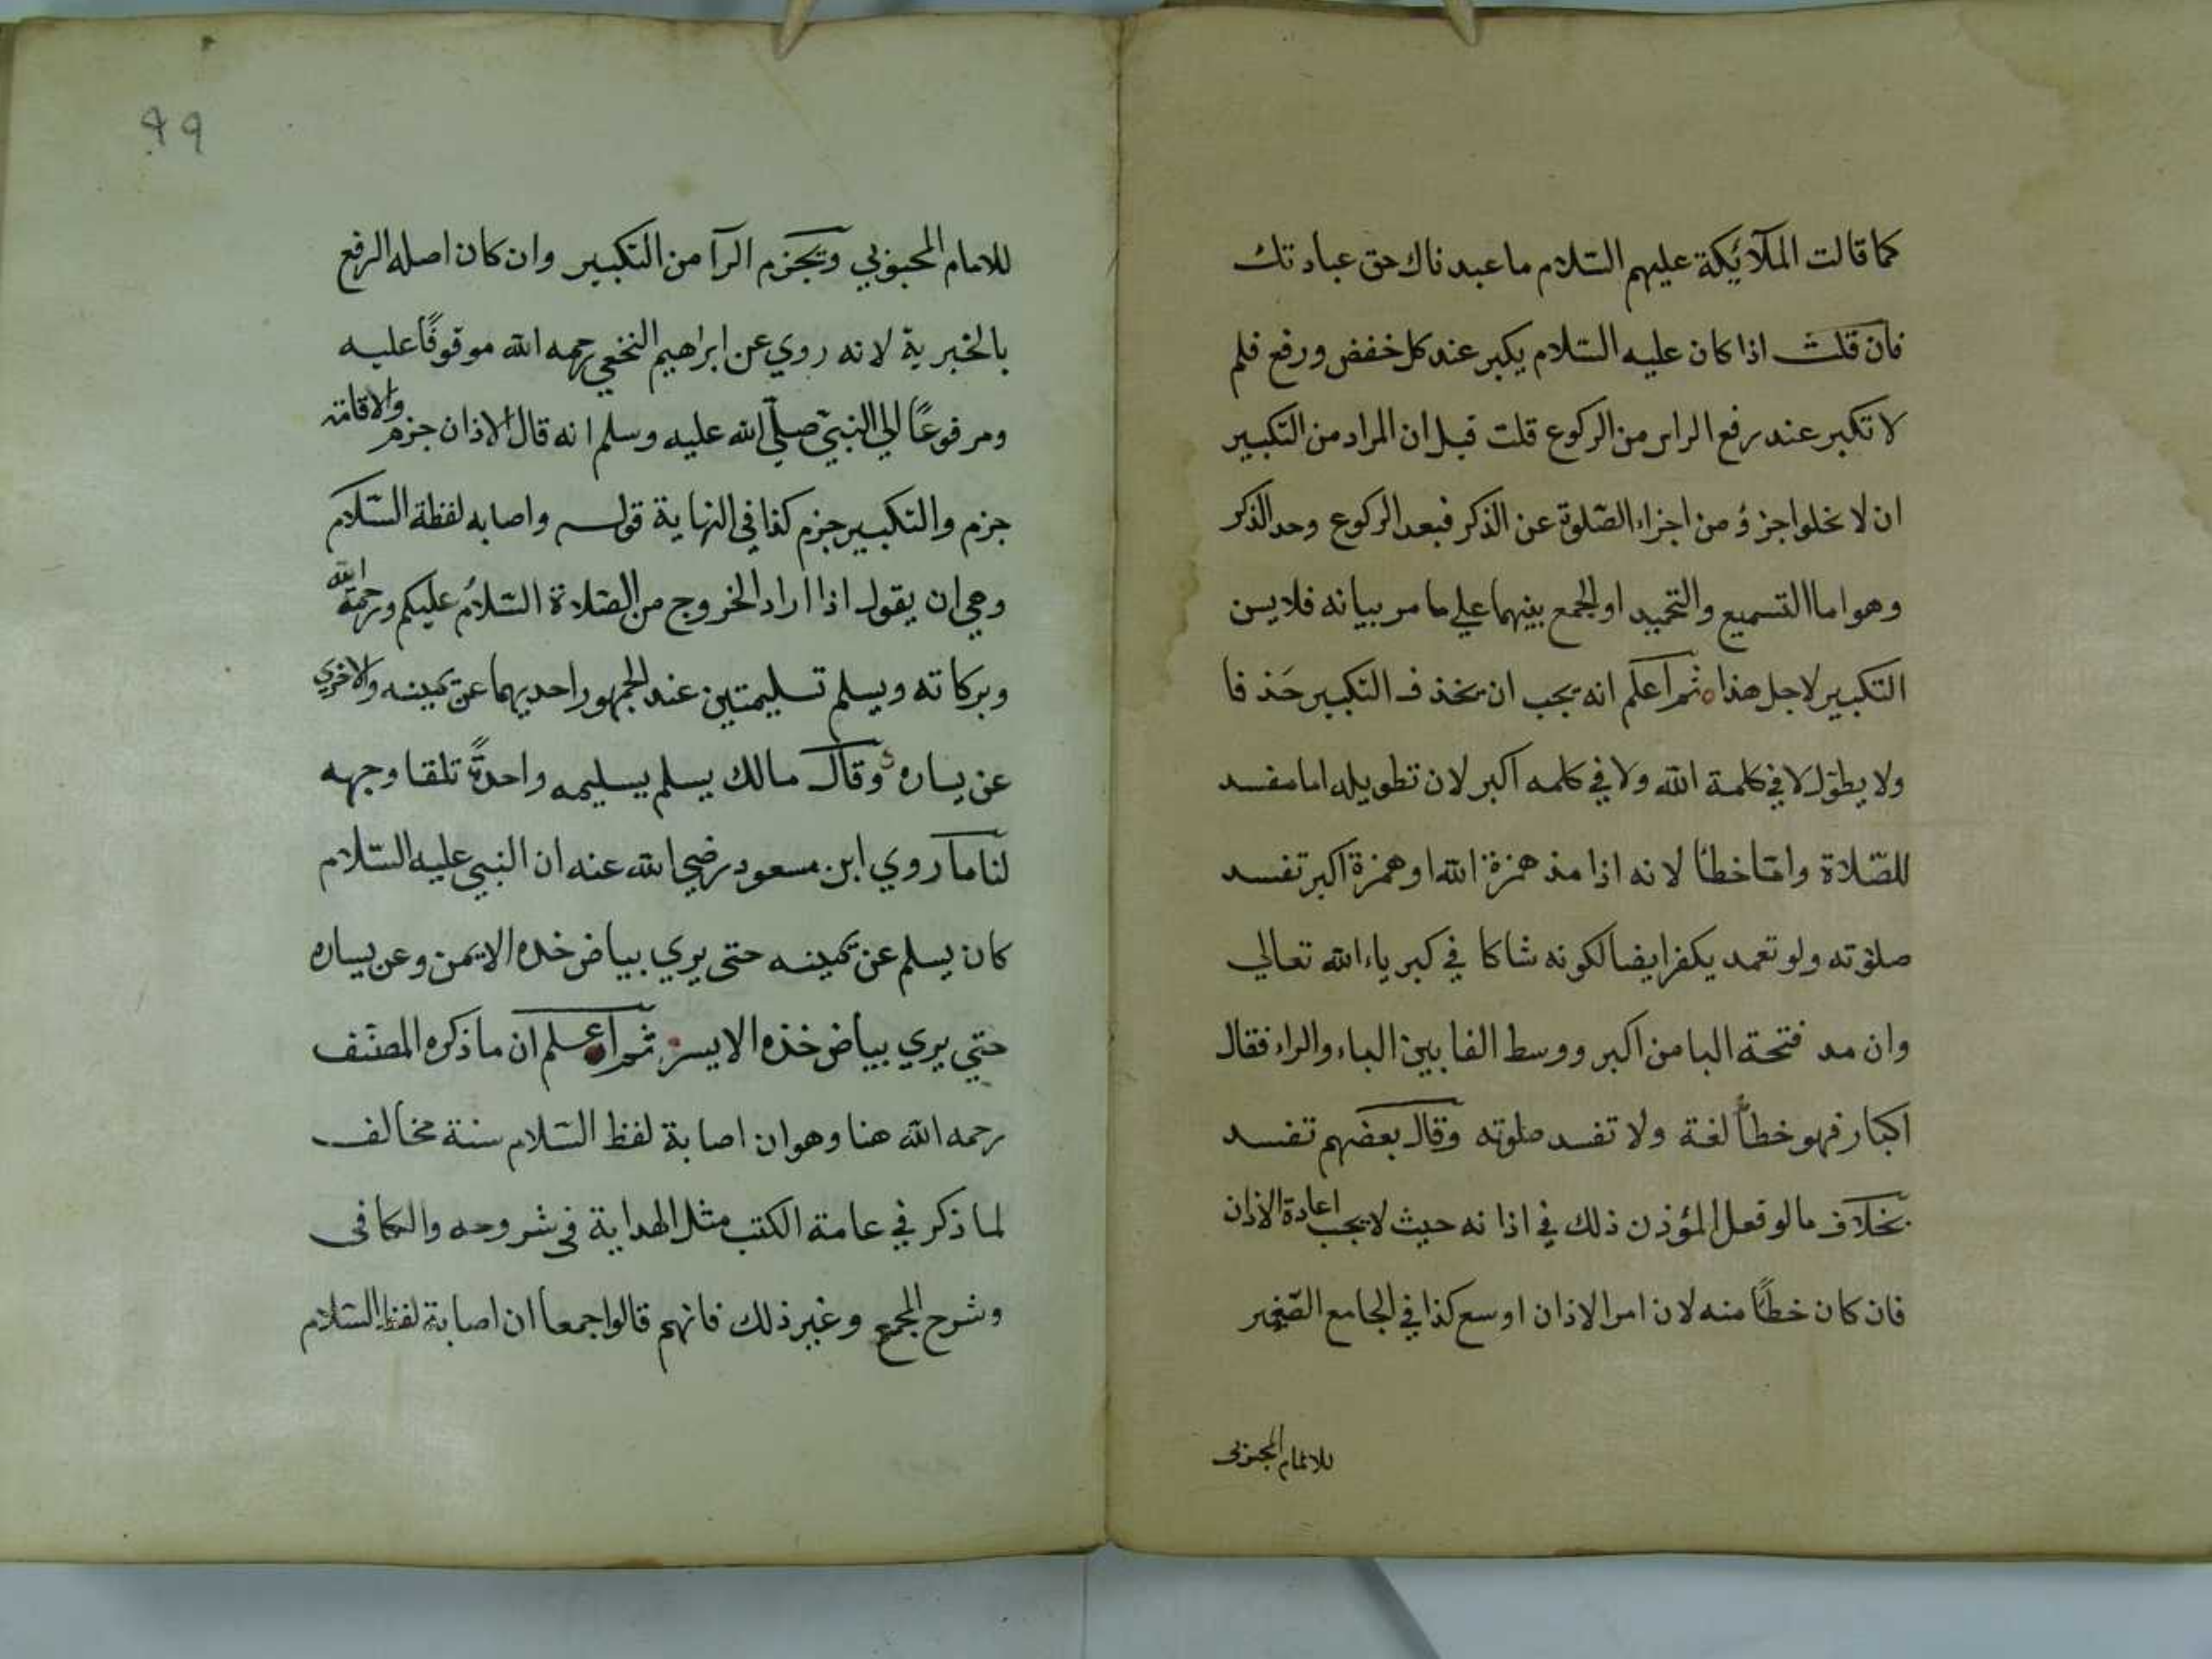 كما قالت الملآئيكة عليهم السّلام ما عبدناك حق عبادتك
فان قلت اذا كان عليه السّلام يكبر عند كل خفض ورفع فلم
لا تكبر عند رفع الراس من الركوع قلت قيل ان المراد من التكبير
ان لا يخلوا جزؤ من اجزاء الصّلوة عن الذكر فبعد الركوع وحد الذكر
وهو اما التسميع والتحميد او الجمع بينهما علي ما مر بيانه فلا يسن
التكبير لاجل هذا ثم اعلم انه يجب ان يحذف التكبير حَذفا
ولا يطوّل لا في كلمة الله ولا في كلمه اكبر لان تطويله اما مفسد
للصّلاة وامّا خطأ لانه اذا مد همزة الله او همزة اكبر تفسد
صلوته ولو تعمد يكفر ايضا لكونه شاكا في كبرياء الله تعالي
وان مد فتحة البا من اكبر ووسط الفا بين الباء والراء فقال
اكبار فهو خطأ لغة ولا تفسد صلوته وقال بعضهم تفسد
بخلاف ما لو فعل المؤذن ذلك في اذانه حيث لا يجب اعادة الاذان
فان كان خطأً منه لان امر الاذان اوسع كذا في الجامع الصّغير
للامام المحبوبى
99
للامام المحبوبي ويجزم الرآ من التكبير وان كان اصله الرفع
بالخبرية لانه روي عن ابراهيم النخعي رحمه الله موقوفًا عليه
ومرفوعًا الي النبيّ صلّي الله عليه وسلم انه قال الاذان جزم والاقامة
جزم والتكبير جزم كذا في النهاية قوله واصابه لفظة السّلام
وهي ان يقول اذا اراد الخروج من الصّلاة السّلامُ عليكم ورحمة الله
وبركاته ويسلم تسليمتين عند الجمهور احديهما عن يمينه والاخري
عن يساره وقال مالك يسلم يسليمه واحدةً تلقا وجهه
لنا ما روي ابن مسعود رضي الله عنه ان النبي عليه السّلام
كان يسلم عن يمينه حتى يري بياض خده الايمن وعن يساره
حتي يري بياض خذه الايسر ثم اعلم ان ما ذكره المصنّف
رحمه الله هنا وهو ان اصابة لفظ السّلام سنة مخالف
لما ذكر في عامة الكتب مثل الهداية فى شروحه والكافى
وشرح المجمع وغير ذلك فانهم قالوا جمعا ان اصابة لفظ السّلام